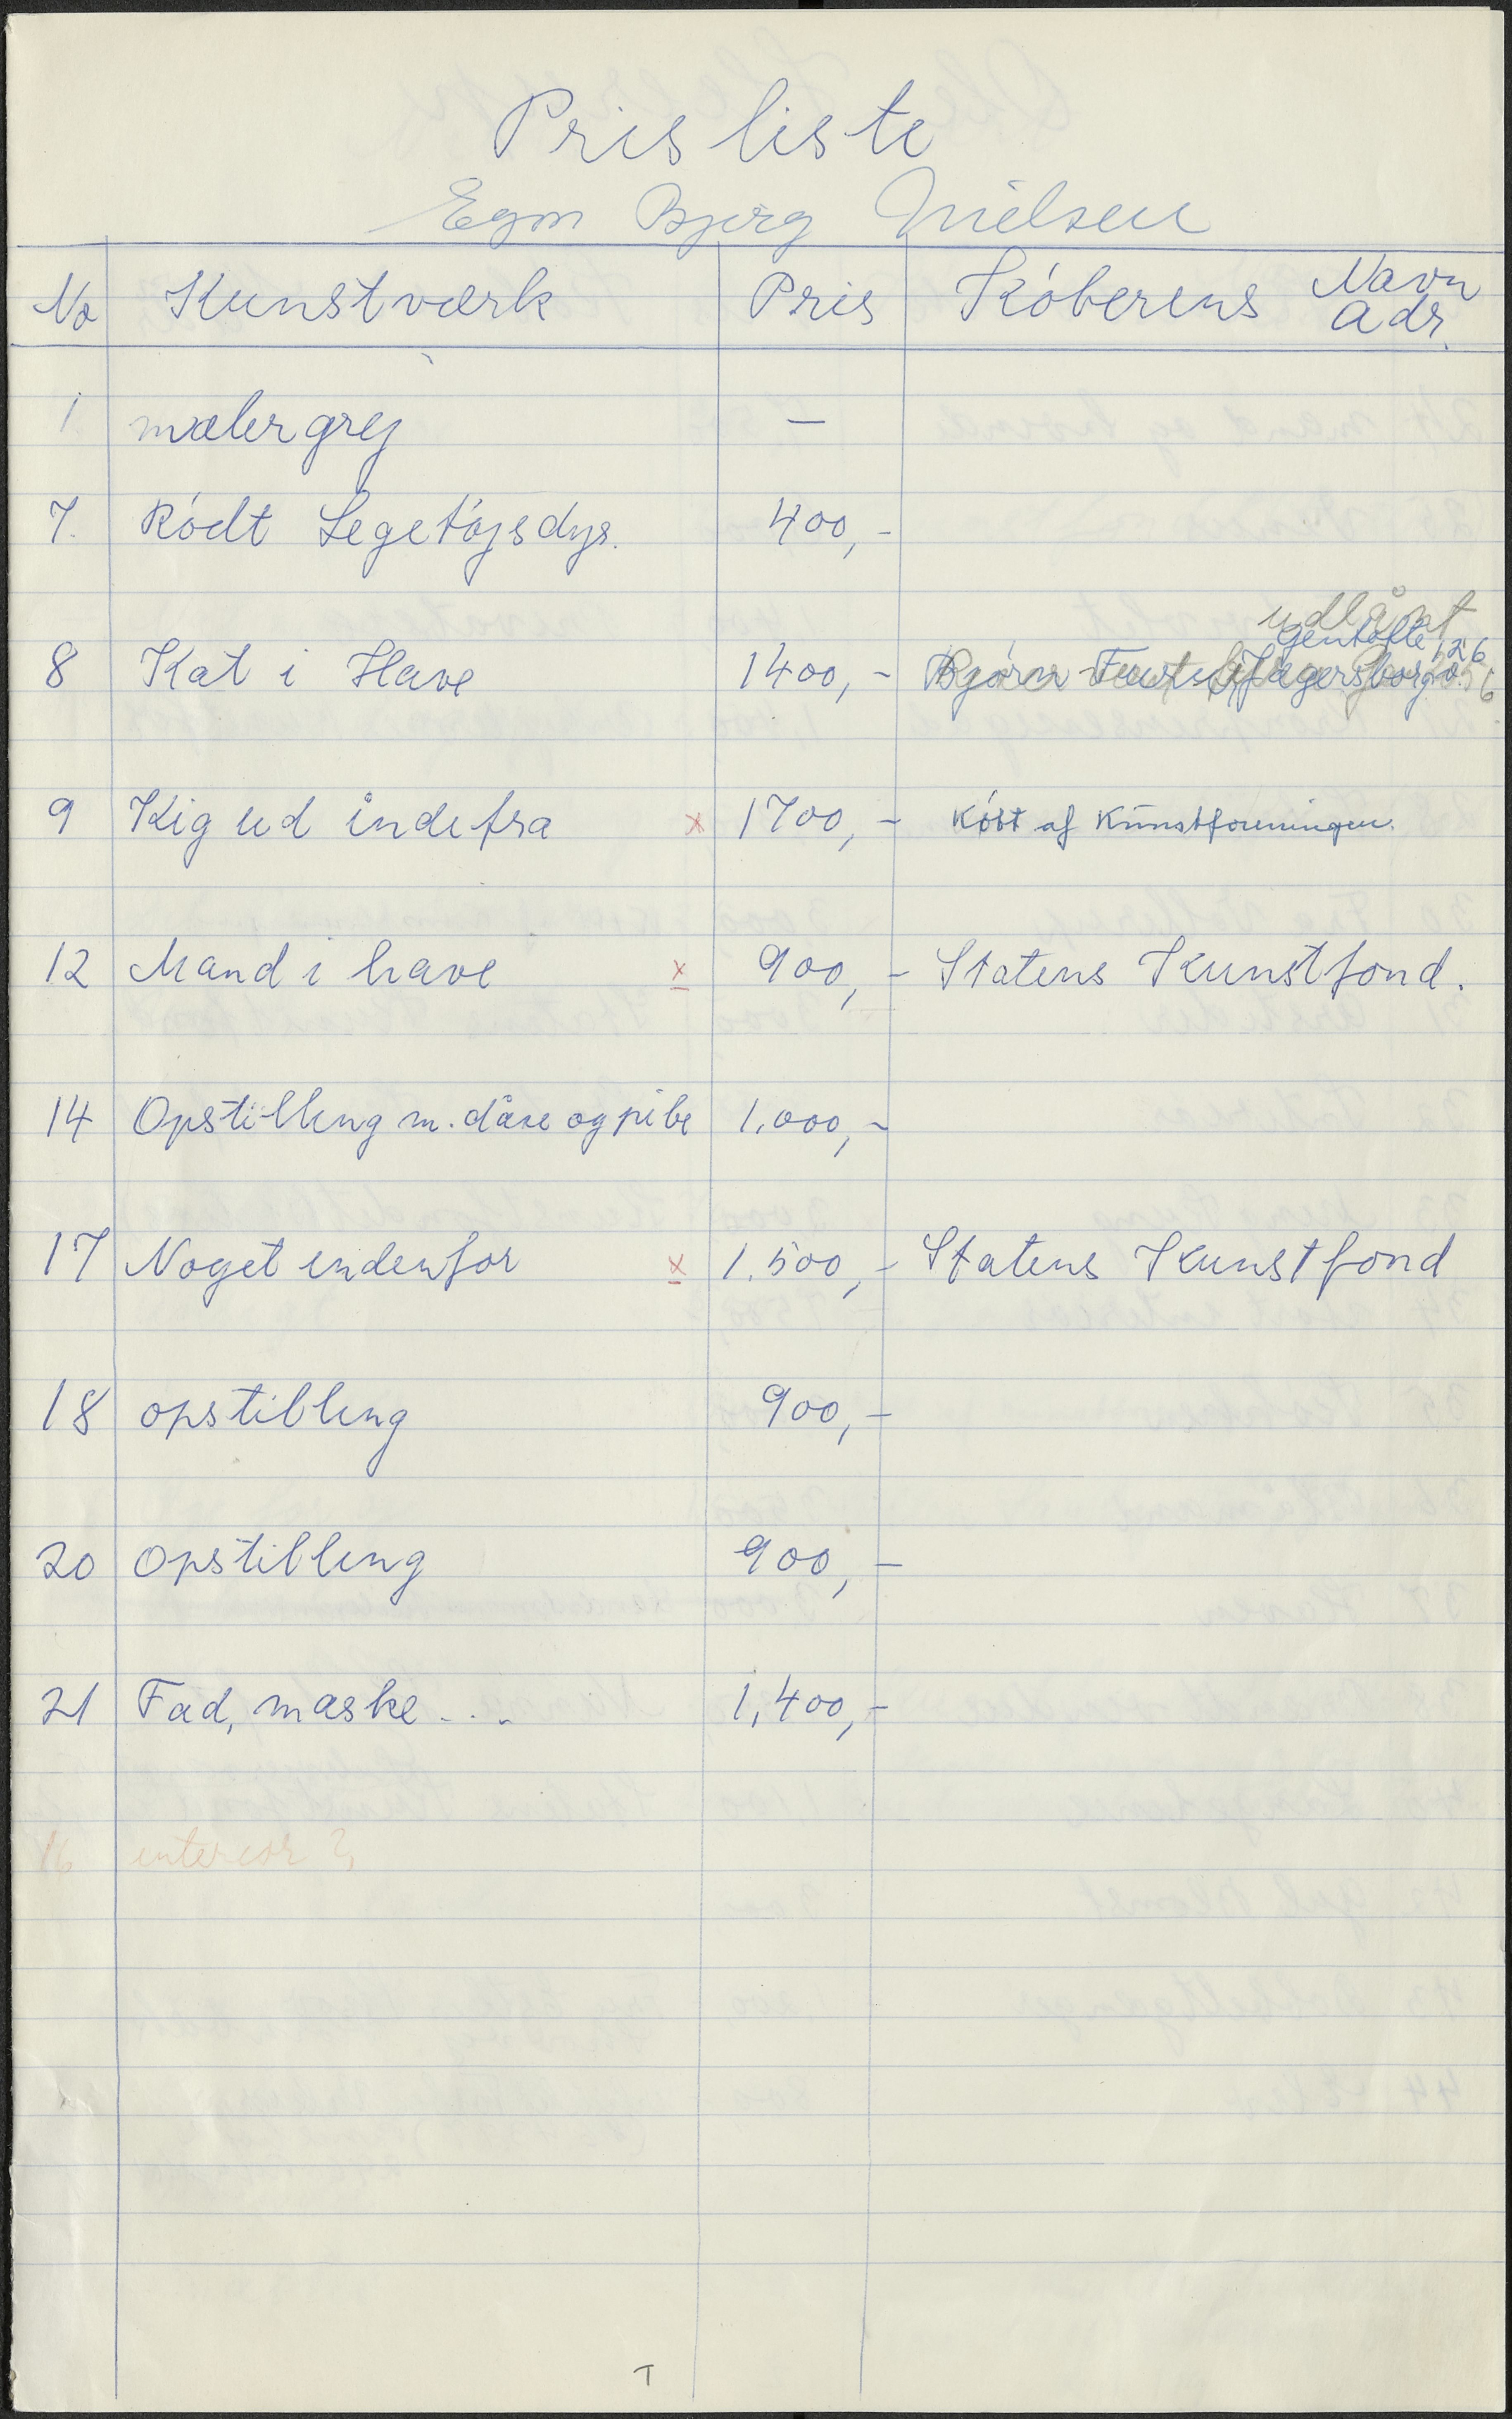 Prisliste
Egon Bjerg Nielsen
No Kunstværk Pris Köberens Navn Adr.
1. malergrej —
7. Rödt Legetöjsdyr. 400,-
udlånt
Gentofte 126
8 Kat i Have 1400,- Bjørn Jægersborg
9 Kig ud indefra x 1700,- Købt af Kunstforeningen.
12 Mand i have x 900,- Statens Kunstfond.
14 Opstilling m. dåse og pibe 1.000,-
17 Noget indenfor x 1.500,- Statens Kunstfond
18 opstilling 900,-
20 Opstilling 900,-
21 Fad, maske ... 1,400,-
16 interiør ?
T